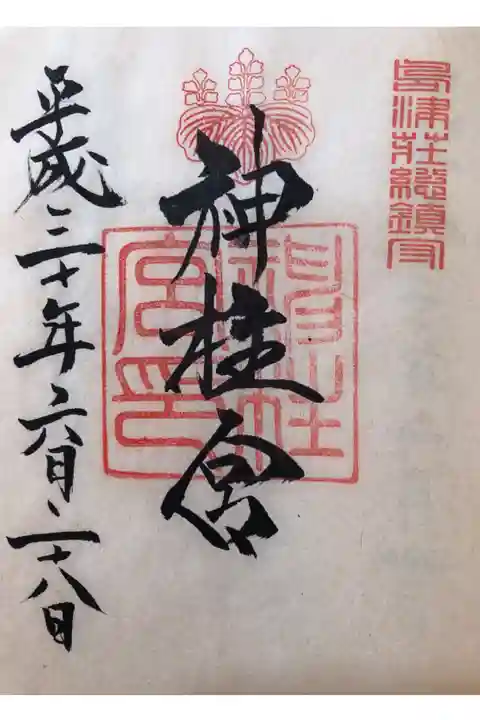 島津荘總鎮守
神柱宮
平成三十年六月二十八日